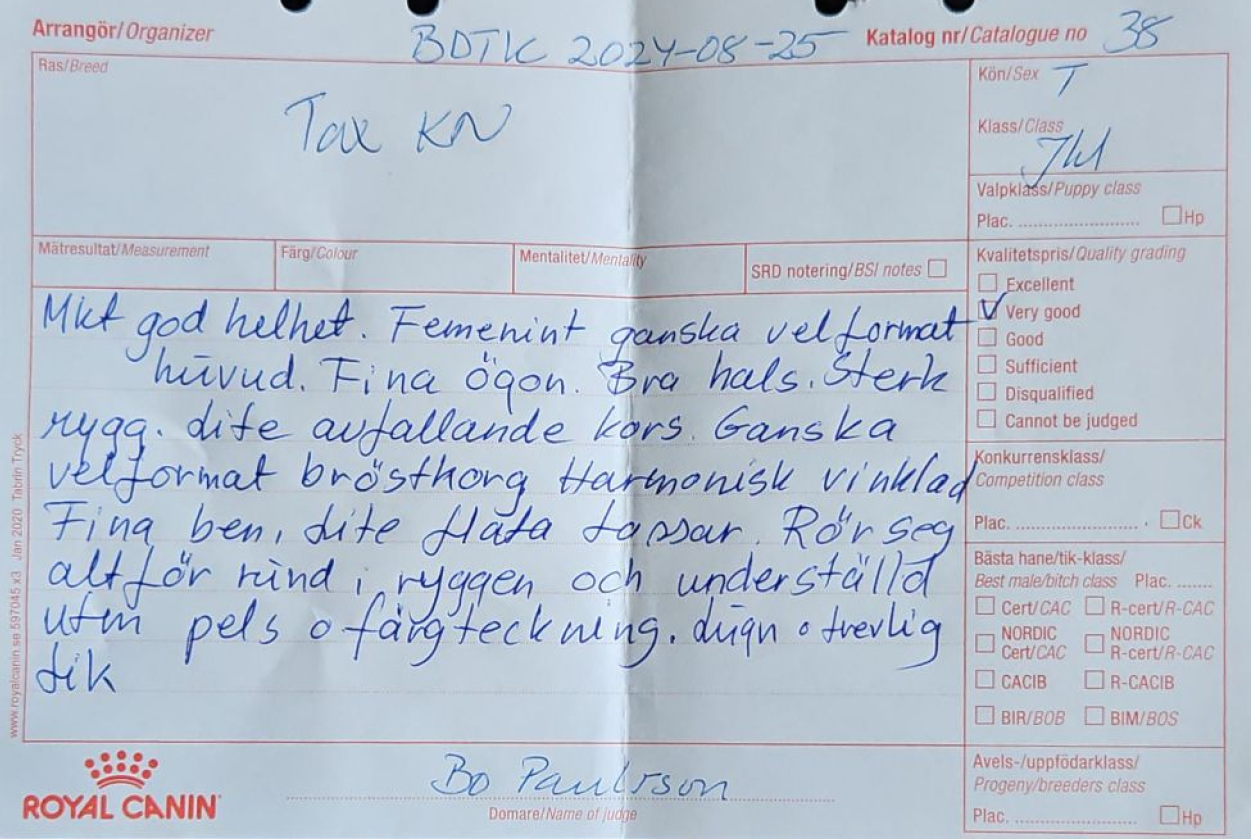 Arrangör/Organizer BDTK 2024-08-25 Katalog nr/Catalogue no 38
Ras/Breed
Tax KN
Kön/Sex T
Klass/Class
Jkl
Valpklass/Puppy class
Plac. ............................ Hp
Mätresultat/Measurement Färg/Colour Mentalitet/Mentality SRD notering/BSI notes
Kvalitetspris/Quality grading
Excellent
Very good
Good
Sufficient
Disqualified
Cannot be judged
Mkt god helhet. Femenint ganska velformat
huvud. Fina ögon. Bra hals. Sterk
rygg. Lite avfallande kors. Ganska
velformat brösthorg Harmonisk vinklad
Fina ben, Lite flata tassar. Rör seg
altför rund i ryggen och underställd
Utm pels o färgteckning. Lugn o trevlig
tik
Konkurrensklass/
Competition class
Plac. ............................ Ck
Bästa hane/tik-klass/
Best male/bitch class Plac. .......
Cert/CAC R-cert/R-CAC
NORDIC Cert/CAC NORDIC R-cert/R-CAC
CACIB R-CACIB
BIR/BOB BIM/BOS
Avels-/uppfödarklass/
Progeny/breeders class
Plac. ............................ Hp
ROYAL CANIN
Bo Paulsson
Domare/Name of judge
www.royalcanin.se 597045 x3 Jan 2020 Tabrin Tryck